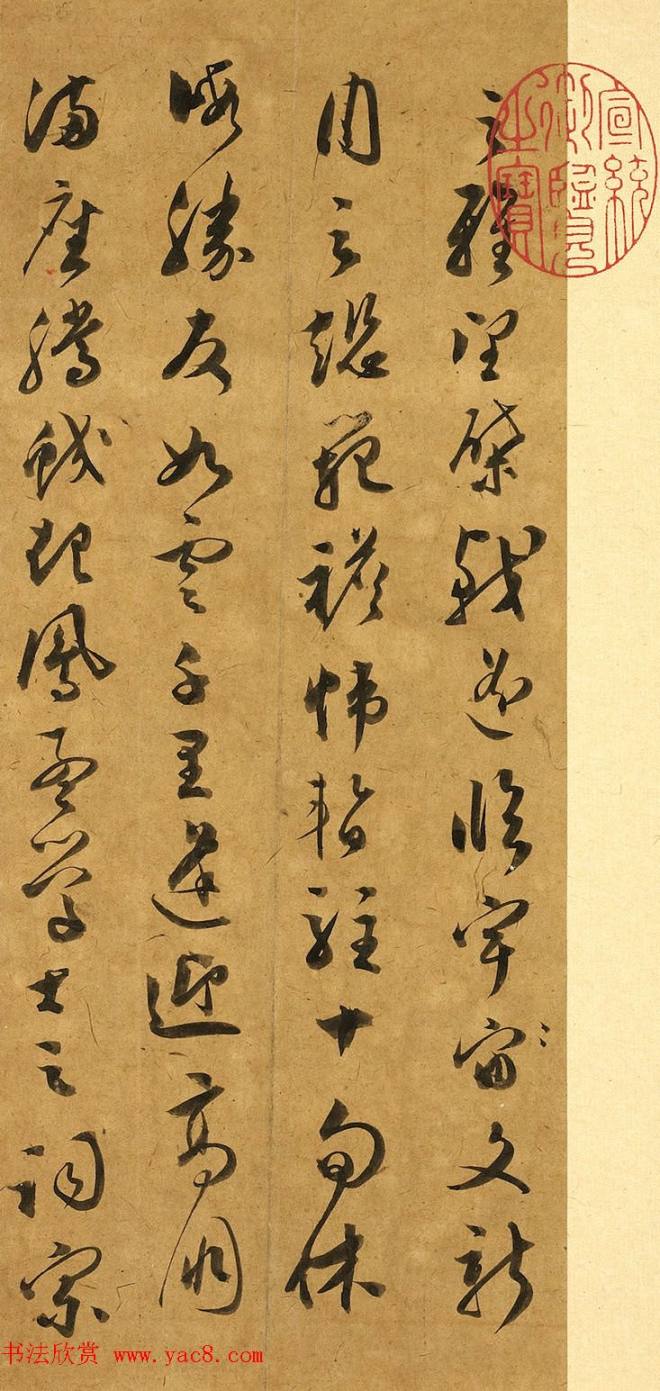 宣統御覽之寶
之雅望棨戟遥臨宇宙文新
州之懿範襜帷暫駐十旬休
暇勝友如雲千里逢迎高朋
滿座騰蛟起鳳孟學士之詞宗
书法欣赏 www.yac8.com